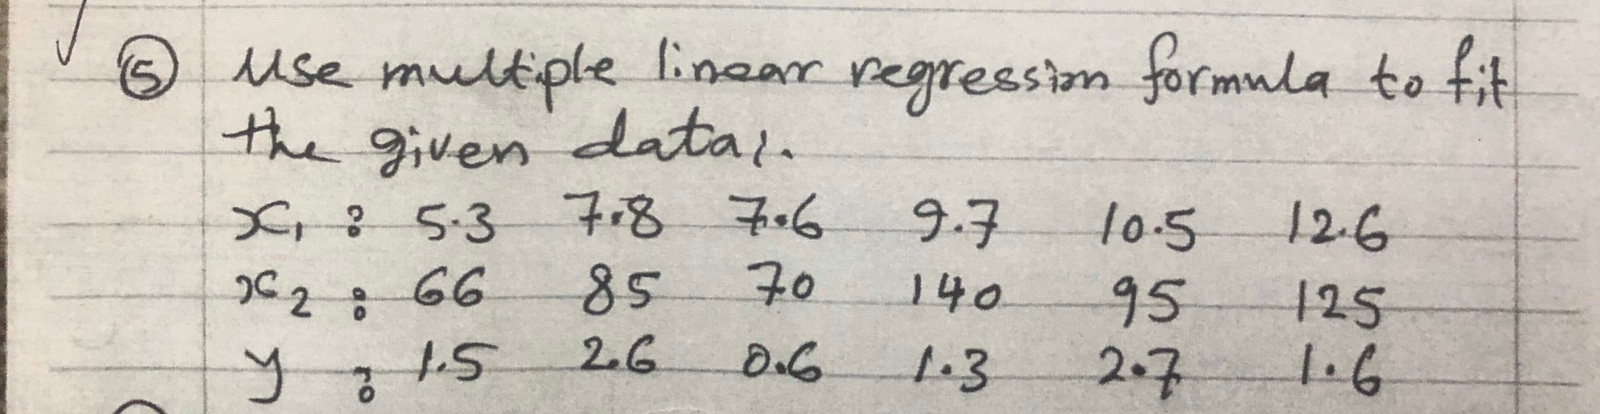 ⑤ Use multiple linear regression formula to fit
the given data:.
x₁ : 5.3 7.8 7.6 9.7 10.5 12.6
x₂ : 66 85 70 140 95 125
y : 1.5 2.6 0.6 1.3 2.7 1.6